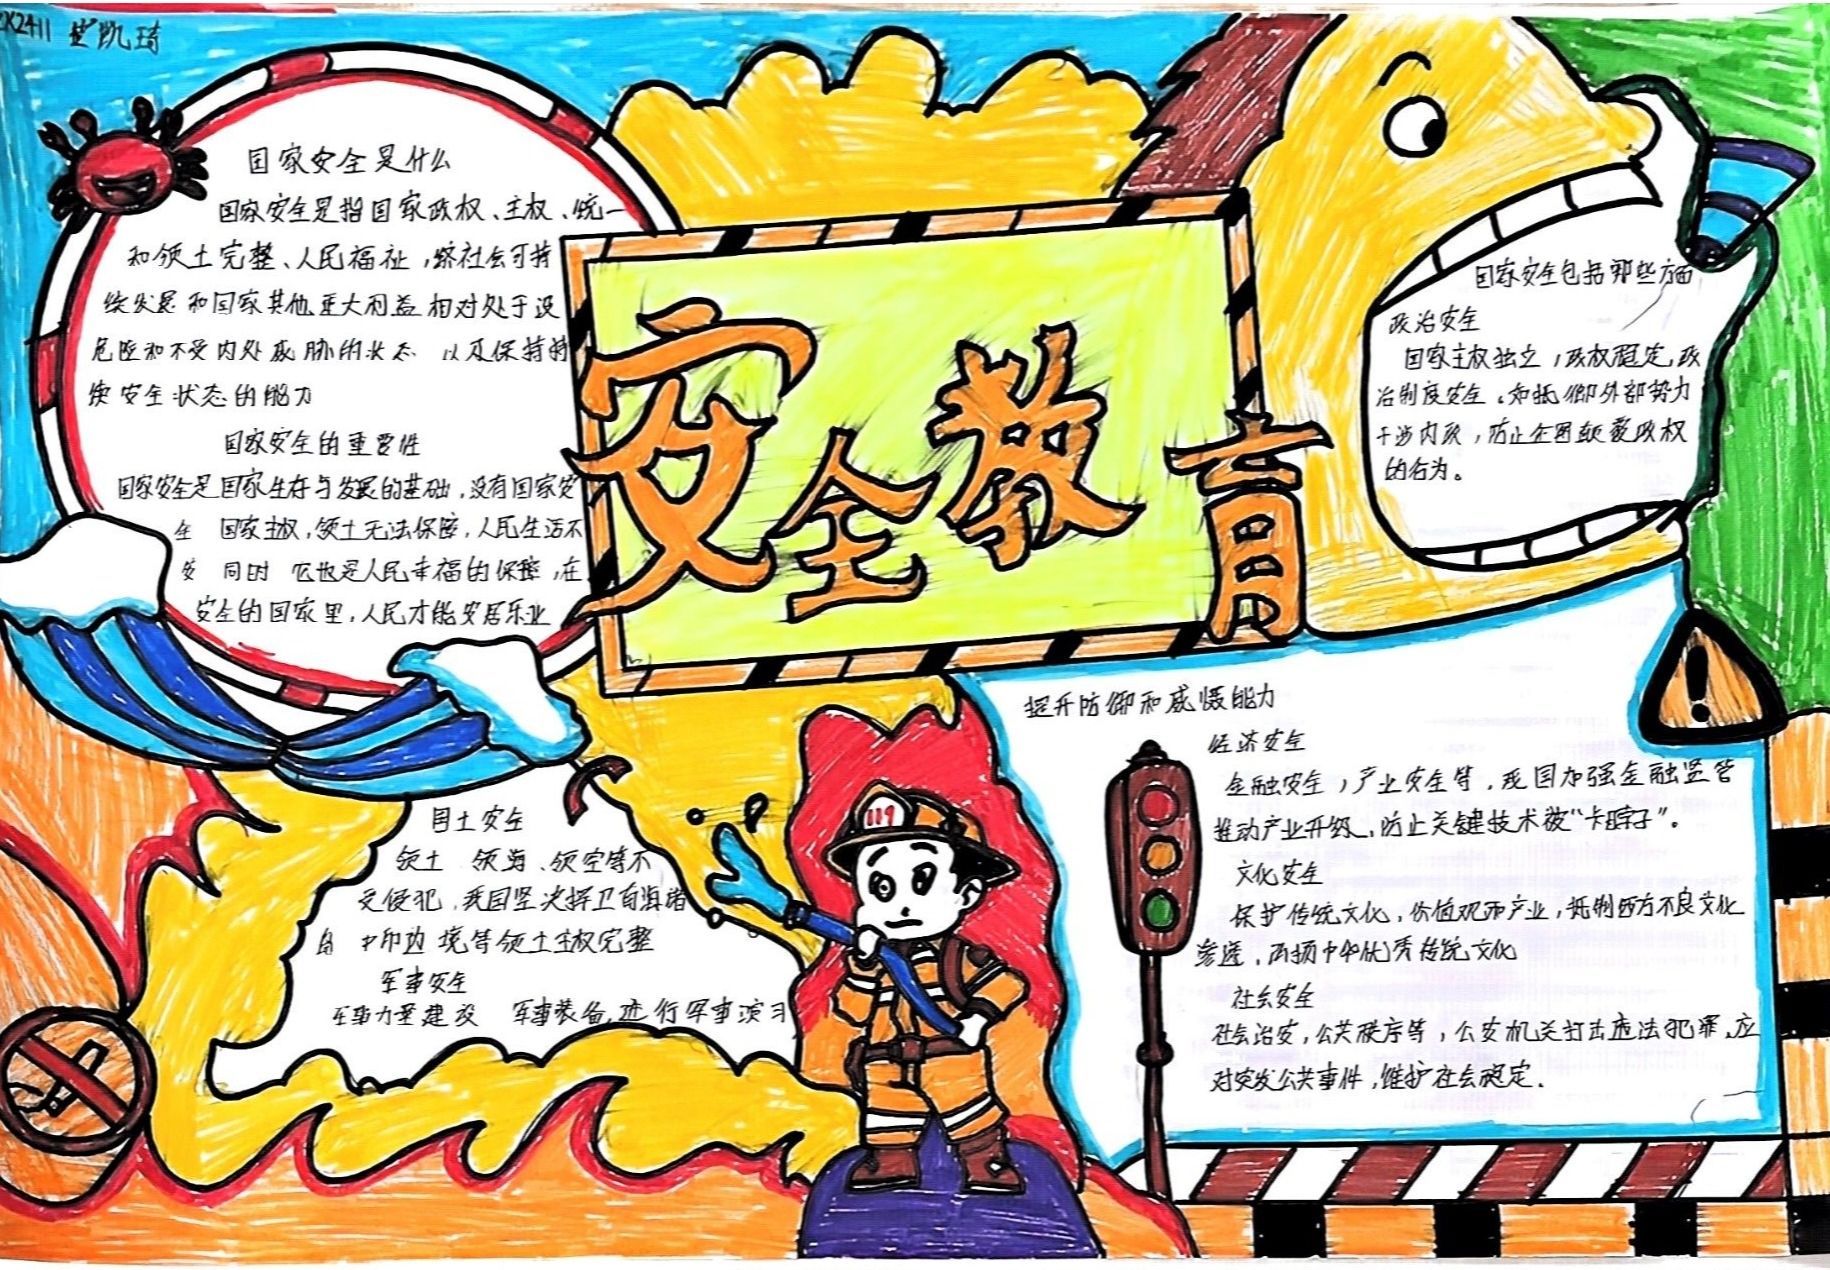 ZK2411 凯琦
国家安全是什么
国家安全是指国家政权、主权、统一
和领土完整、人民福祉,经社会可持
续发展和国家其他重大利益相对处于没
危险和不受内外威胁的状态 以及保持持
续安全状态的能力
国家安全的重要性
国家安全是国家生存与发展的基础,没有国家安
全 国家主权,领土无法保障,人民生活不
安 同时 它也是人民幸福的保障,在
安全的国家里,人民才能安居乐业
安全教育
国家安全包括哪些方面
政治安全
国家主权独立,政权稳定,政
治制度安全。如抵御外部势力
干涉内政,防止企图颠覆政权
的行为。
国土安全
领土 领海、领空等不
受侵犯,我国坚决捍卫自诸
岛 中印边境等领土主权完整
军事安全
军事力量建设 军事装备,进行军事演习
119
提升防御和威慑能力
经济安全
金融安全,产业安全等,我国加强金融监管
推动产业升级,防止关键技术被“卡脖子”。
文化安全
保护传统文化,价值观和产业,抵制西方不良文化
渗透,弘扬中华优秀传统文化
社会安全
社会治安,公共秩序等,公安机关打击违法犯罪,应
对突发公共事件,维护社会稳定.